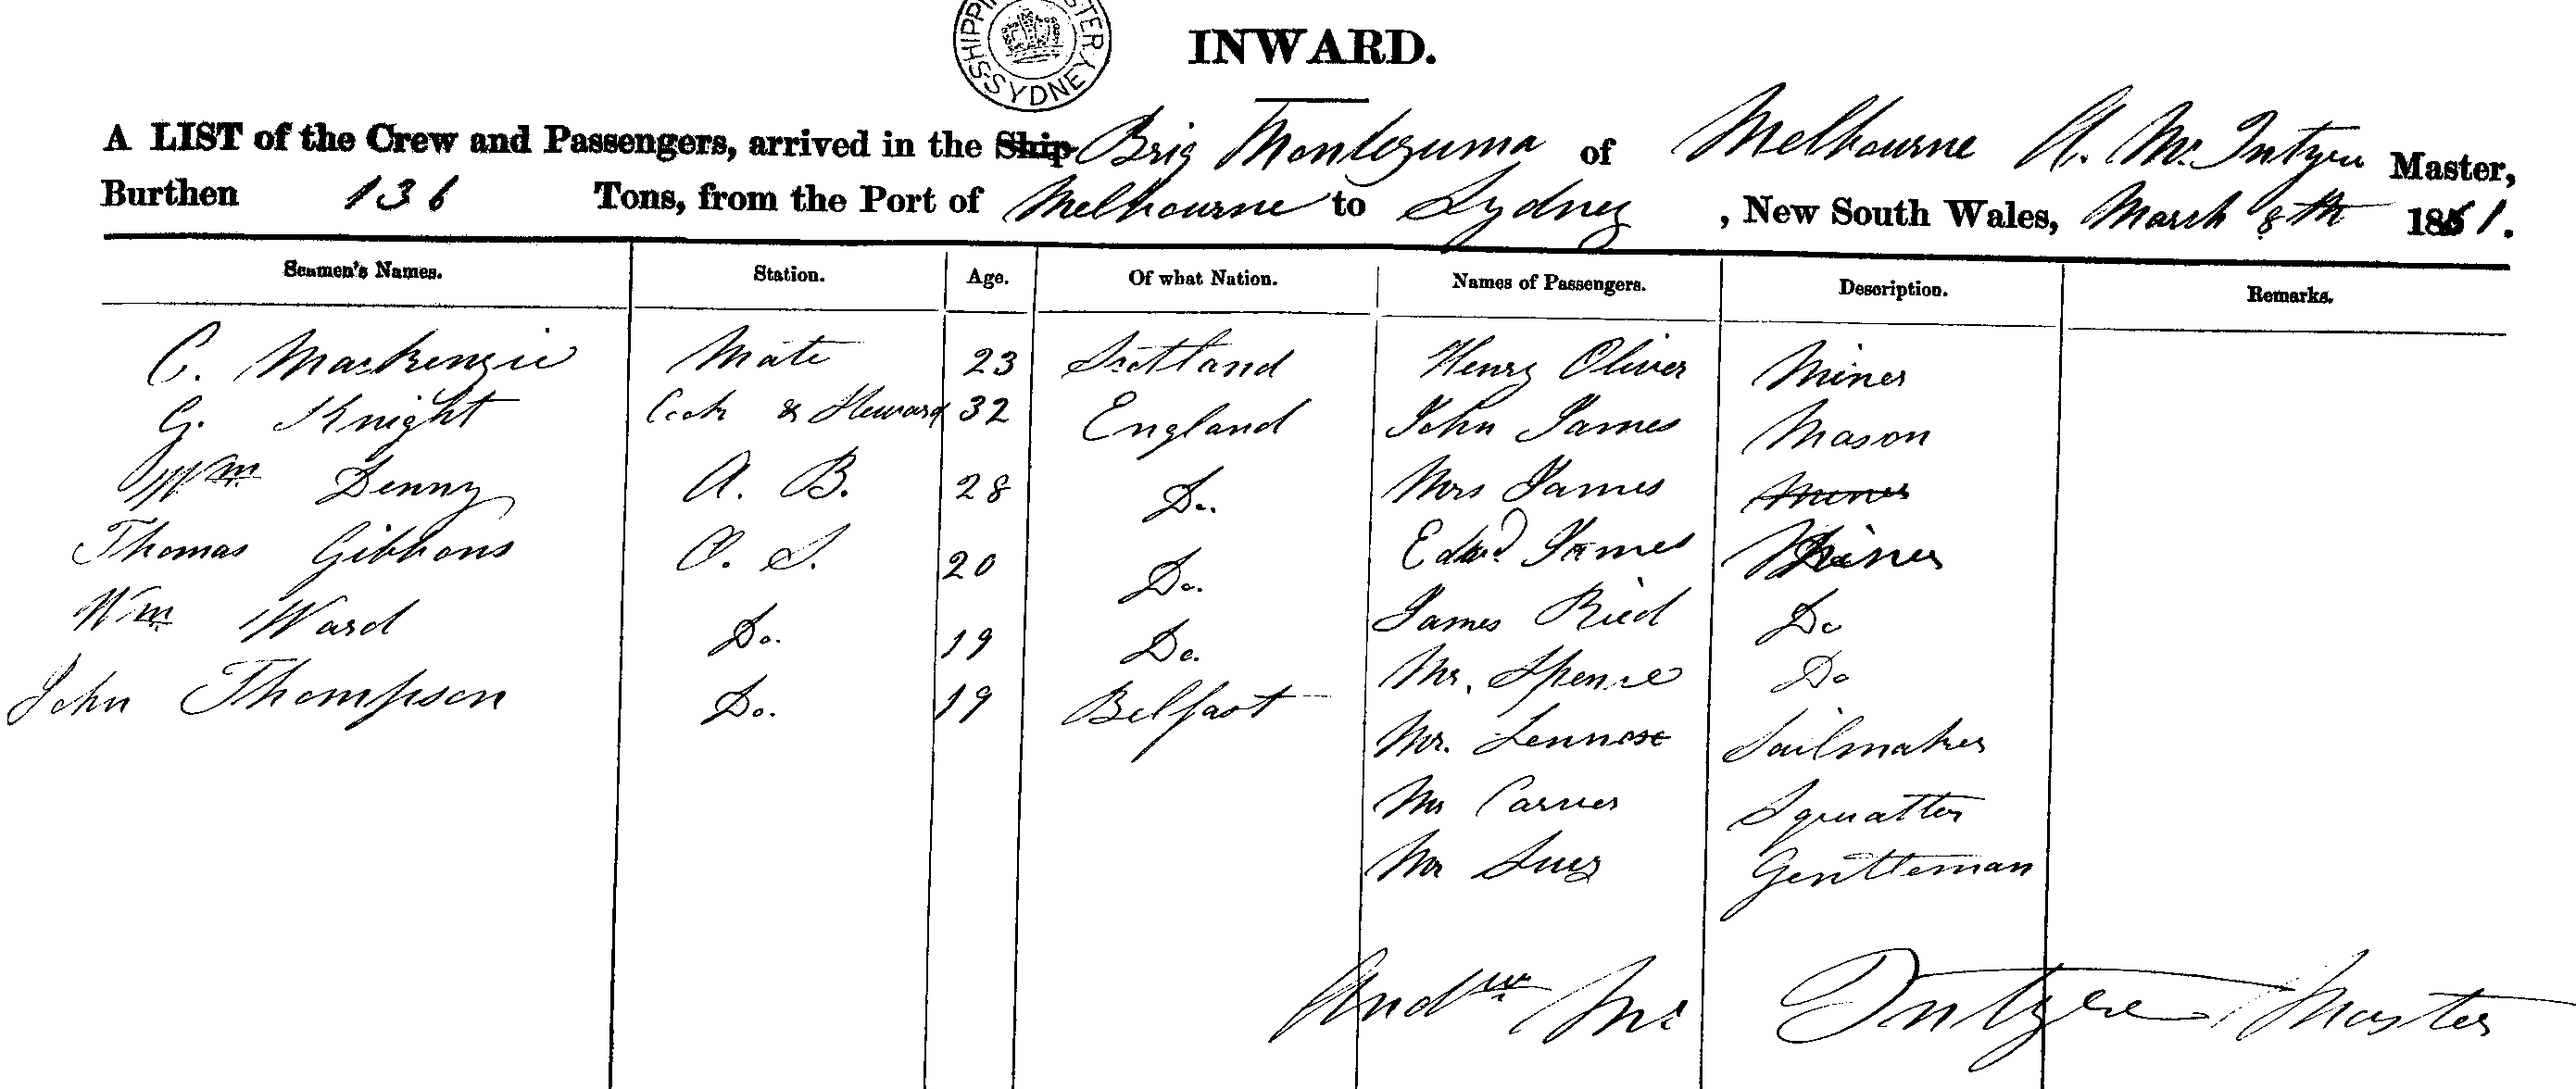 SHIPPING MASTER SYDNEY
INWARD.
A LIST of the Crew and Passengers, arrived in the Ship Brig Montezuma of Melbourne A. Mc Intyre Master,
Burthen 136 Tons, from the Port of Melbourne to Sydney, New South Wales, March 8th 1861.
Seamen's Names. Station. Age. Of what Nation. Names of Passengers. Description. Remarks.
C. Mackenzie Mate 23 Scotland Henry Oliver Miner
G. Knight Cook & Steward 32 England John James Mason
Wm Denny A. B. 28 Do. Mrs James Miner
Thomas Gibbons O. S. 20 Do. Edwd. James Miner
Wm Ward Do. 19 Do. James Ried Do
John Thompson Do. 19 Belfast Mr. Spence Do
Mr. Lennox Sailmaker
Mr Carver Squatter
Mr Gentleman
Andw Mc Intyre Master